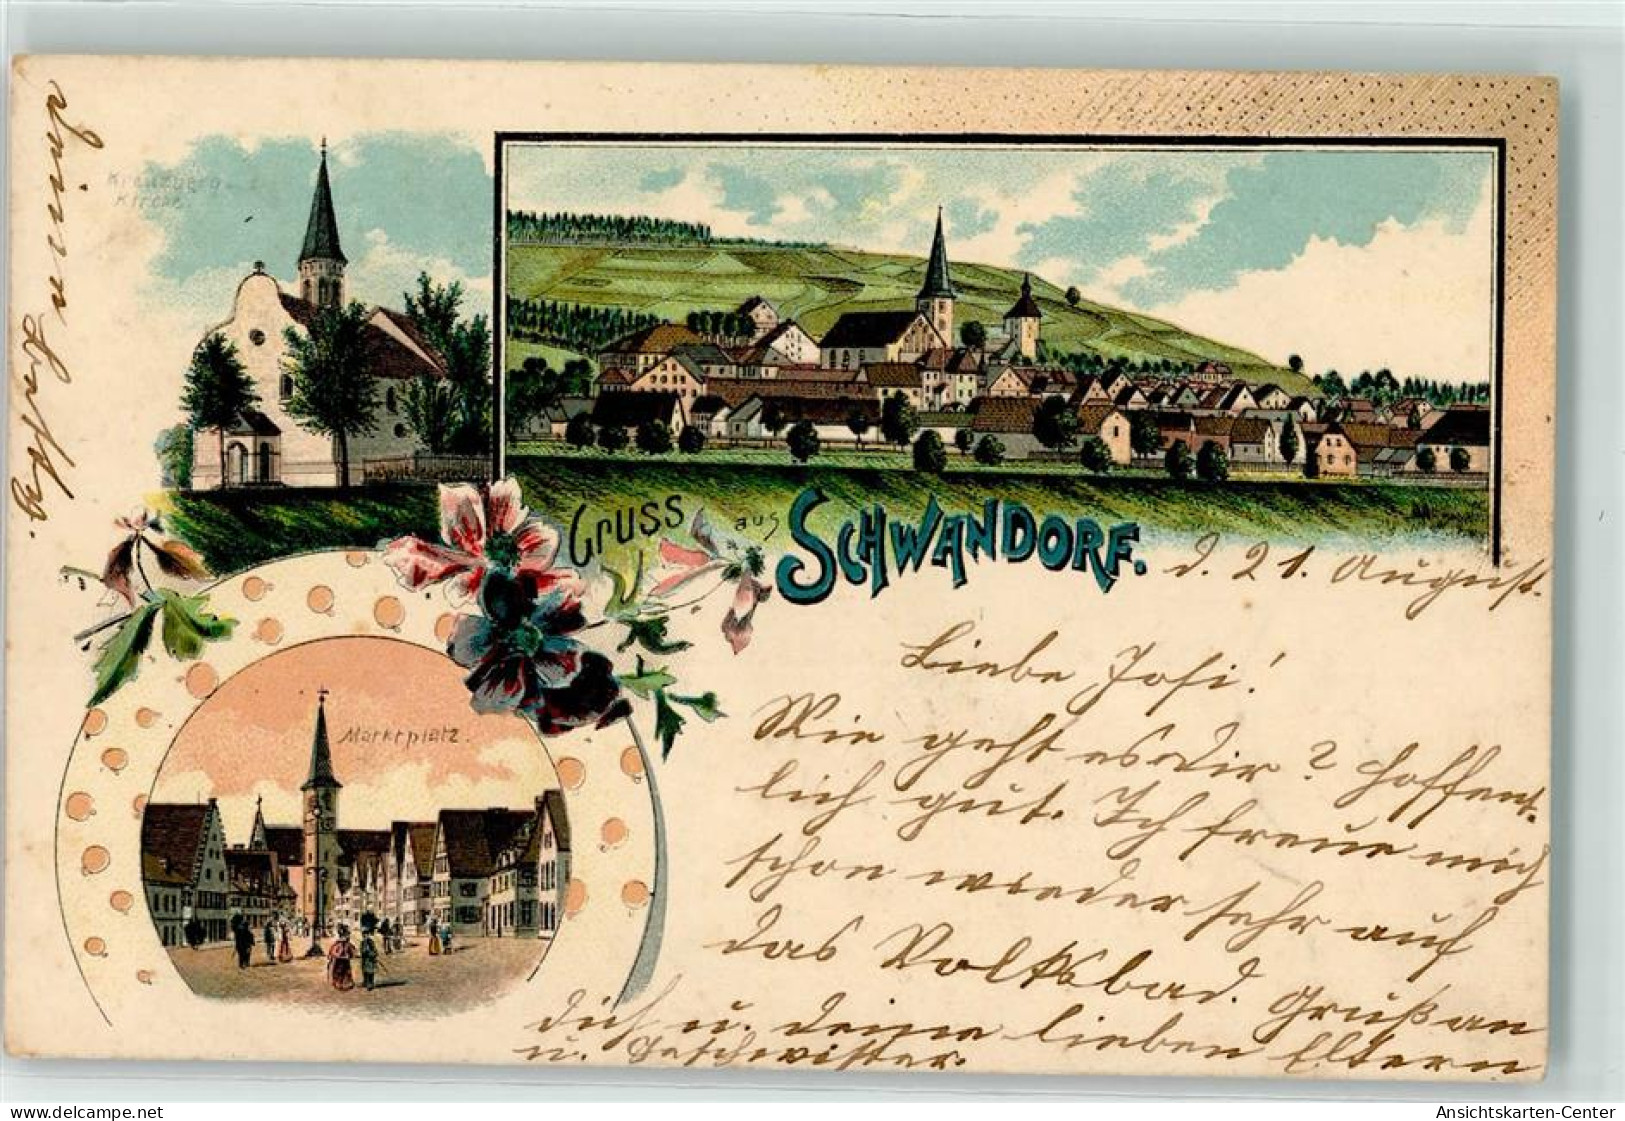 Kreuzberg-
Kirche.
Gruss aus SCHWANDORF.
Marktplatz.
d. 21. August.
Liebe Josi!
Wie geht es dir? Hoffent-
lich gut. Ich freue mich
schon wieder sehr auf
das Volksbad. Gruß an
dich u. deine lieben Eltern
u. Geschwister.
delcampe.net
Ansichtskarten-Center